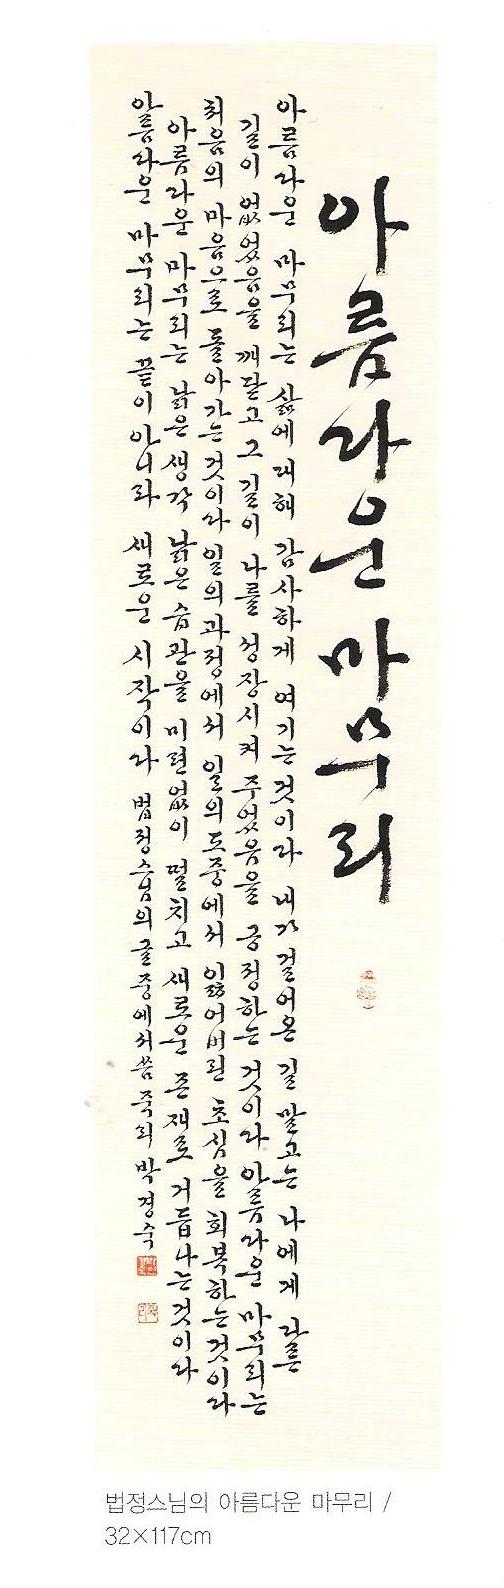 아름다운 마무리
아름다운 마무리는 삶에 대해 감사하게 여기는 것이다 내가 걸어온 길 말고는 나에게 다른
길이 없었음을 깨닫고 그 길이 나를 성장시켜 주었음을 긍정하는 것이다 아름다운 마무리는
처음의 마음으로 돌아가는 것이다 일의 과정에서 일의 도중에서 잃어버린 초심을 회복하는 것이다
아름다운 마무리는 낡은 생각 낡은 습관을 미련없이 떨치고 새로운 존재로 거듭나는 것이다
아름다운 마무리는 끝이 아니라 새로운 시작이다 법정스님의 글 중에서 씀 죽리 박경숙
법정스님의 아름다운 마무리 /
32×117cm